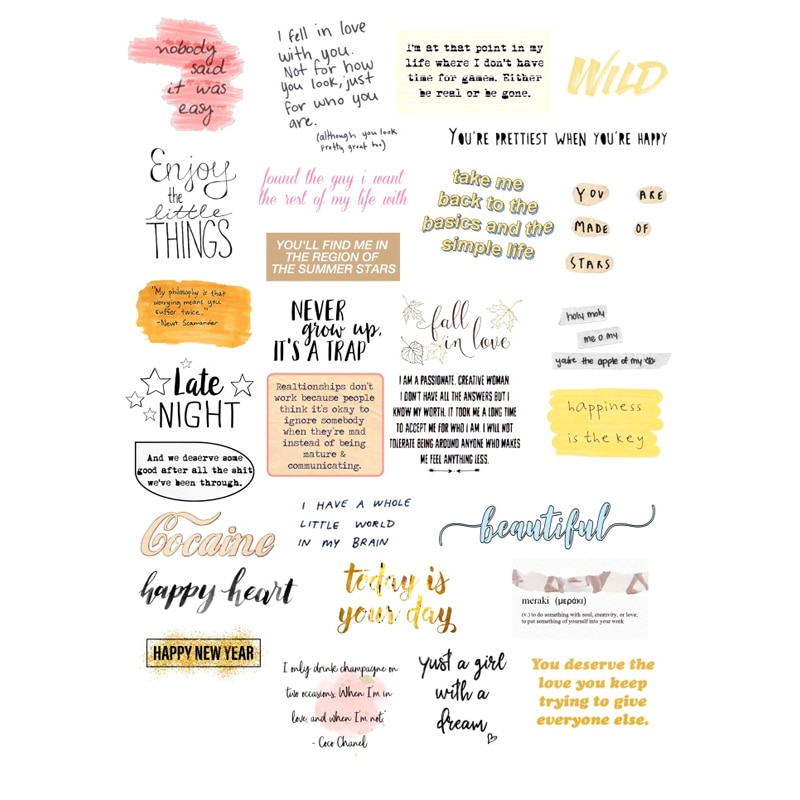 nobody
said
it was
easy
I fell in love
with you.
Not for how
you look, just
for who you
are.
(although you look
pretty great too)
I'm at that point in my
life where I don't have
time for games. Either
be real or be gone.
WILD
YOU'RE PRETTIEST WHEN YOU'RE HAPPY
Enjoy
the
little
THINGS
found the guy i want
the rest of my life with
take me
back to the
basics and the
simple life
YOU ARE
MADE OF
STARS
YOU'LL FIND ME IN
THE REGION OF
THE SUMMER STARS
"My philosophy is that
worrying means you
suffer twice."
-Newt Scamander
NEVER
grow up,
IT'S A TRAP
fall
in love
holy moly
me o my
you're the apple of my
Late
NIGHT
Realtionships don't
work because people
think it's okay to
ignore somebody
when they're mad
instead of being
mature &
communicating.
I AM A PASSIONATE, CREATIVE WOMAN.
I DON'T HAVE ALL THE ANSWERS BUT I
KNOW MY WORTH. IT TOOK ME A LONG TIME
TO ACCEPT ME FOR WHO I AM. I WILL NOT
TOLERATE BEING AROUND ANYONE WHO MAKES
ME FEEL ANYTHING LESS.
happiness
is the key
And we deserve some
good after all the shit
we've been through.
Cocaine
I HAVE A WHOLE
LITTLE WORLD
IN MY BRAIN
beautiful
happy heart
today is
your day
meraki (μεράκι)
(v.) to do something with soul, creativity, or love;
to put something of yourself into your work
HAPPY NEW YEAR
I only drink champagne on
two occasions. When I'm in
love, and when I'm not.
- Coco Chanel
just a girl
with a
dream
You deserve the
love you keep
trying to give
everyone else.